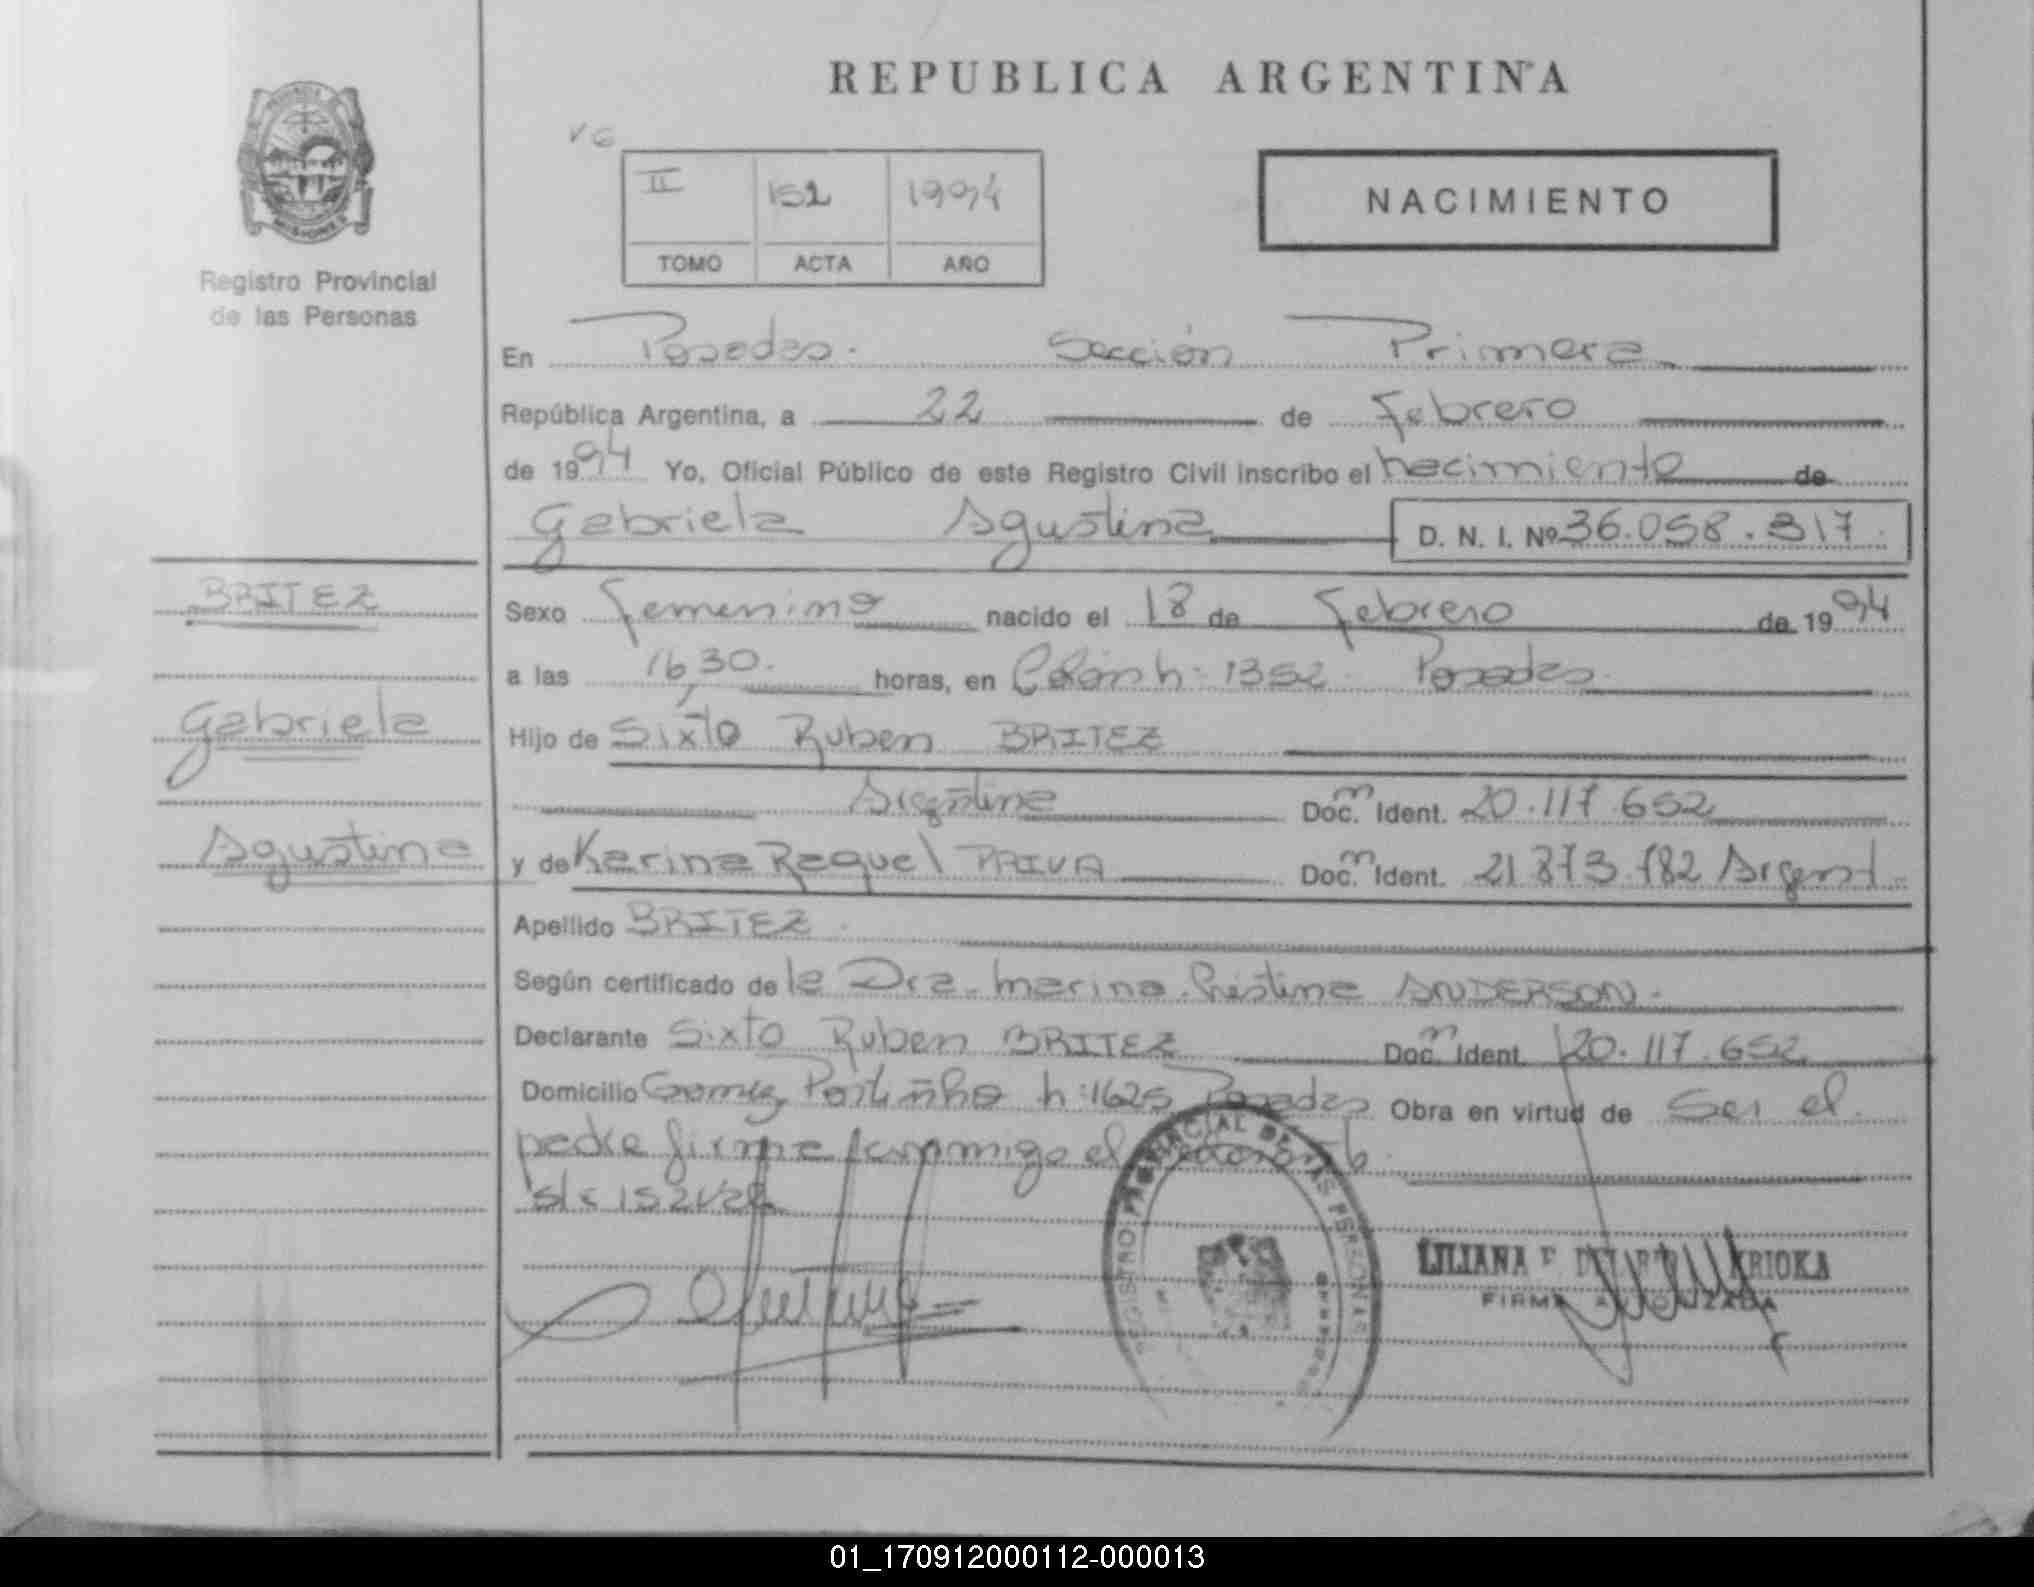 REPUBLICA ARGENTINA
PROVINCIA
MISIONES
Registro Provincial
de las Personas
VG
II 152 1994
TOMO ACTA AÑO
NACIMIENTO
En Posadas. Sección Primera
República Argentina, a 22 de Febrero
de 1994 Yo, Oficial Público de este Registro Civil inscribo el nacimiento de
Gabriela Agustina D. N. I. Nº 36.058.317.
BRITEZ
Gabriela
Agustina
Sexo Femenino nacido el 18 de Febrero de 1994
a las 16,30. horas, en Colón h. 1352. Posadas.
Hijo de Sixto Ruben BRITEZ
Argentina Doc. m Ident. 20.117.652
y de Karina Raquel PRIVA Doc. m Ident. 21.873.782 Argent.
Apellido BRITEZ.
Según certificado de la Dra. Marina Cristina ANDERSON.
Declarante Sixto Ruben BRITEZ Doc. m Ident. 20.117.652
Domicilio Gomez Portinho h:1625 Posadas Obra en virtud de Ser el
padre firma conmigo el
REGISTRO PROVINCIAL DE LAS PERSONAS
LILIANA
FIRMA AUTORIZADA
01_170912000112-000013